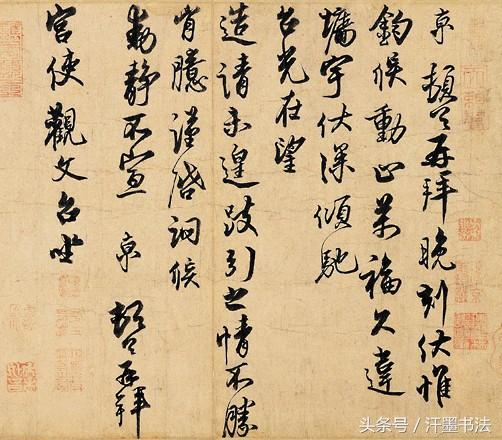 京 頓首再拜晚刻伏惟
鈞候動止萬福久違
墉宇伏深傾馳
台光在望
造請未遑跂引之情不勝
胷臆謹啓詗候
動静不宣 京 頓首再拜
宫使觀文台坐
头条号 / 汗墨书法